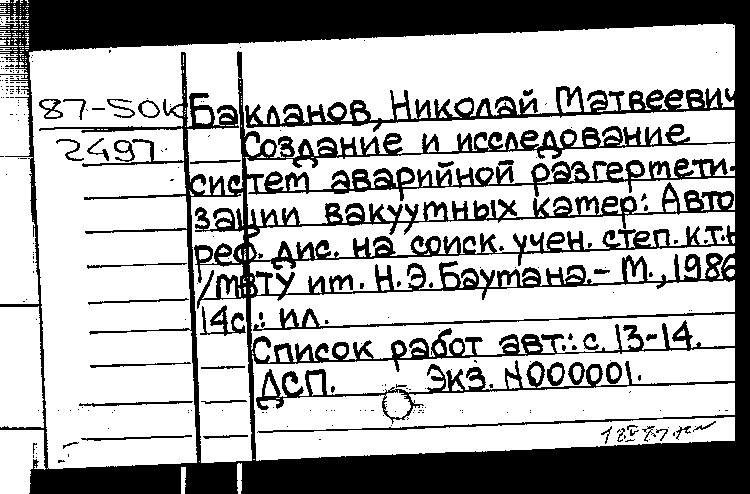 87-50к Бакланов, Николай Матвеевич
2497 Создание и исследование
систем аварийной разгермети-
зации вакуумных камер: Авто
реф. дис. на соиск. учен. степ. к.т.н
/МВТУ им. Н.Э.Баумана.- М., 1986
14с.: ил.
Список работ авт.: с. 13-14.
ДСП. Экз. N000001.